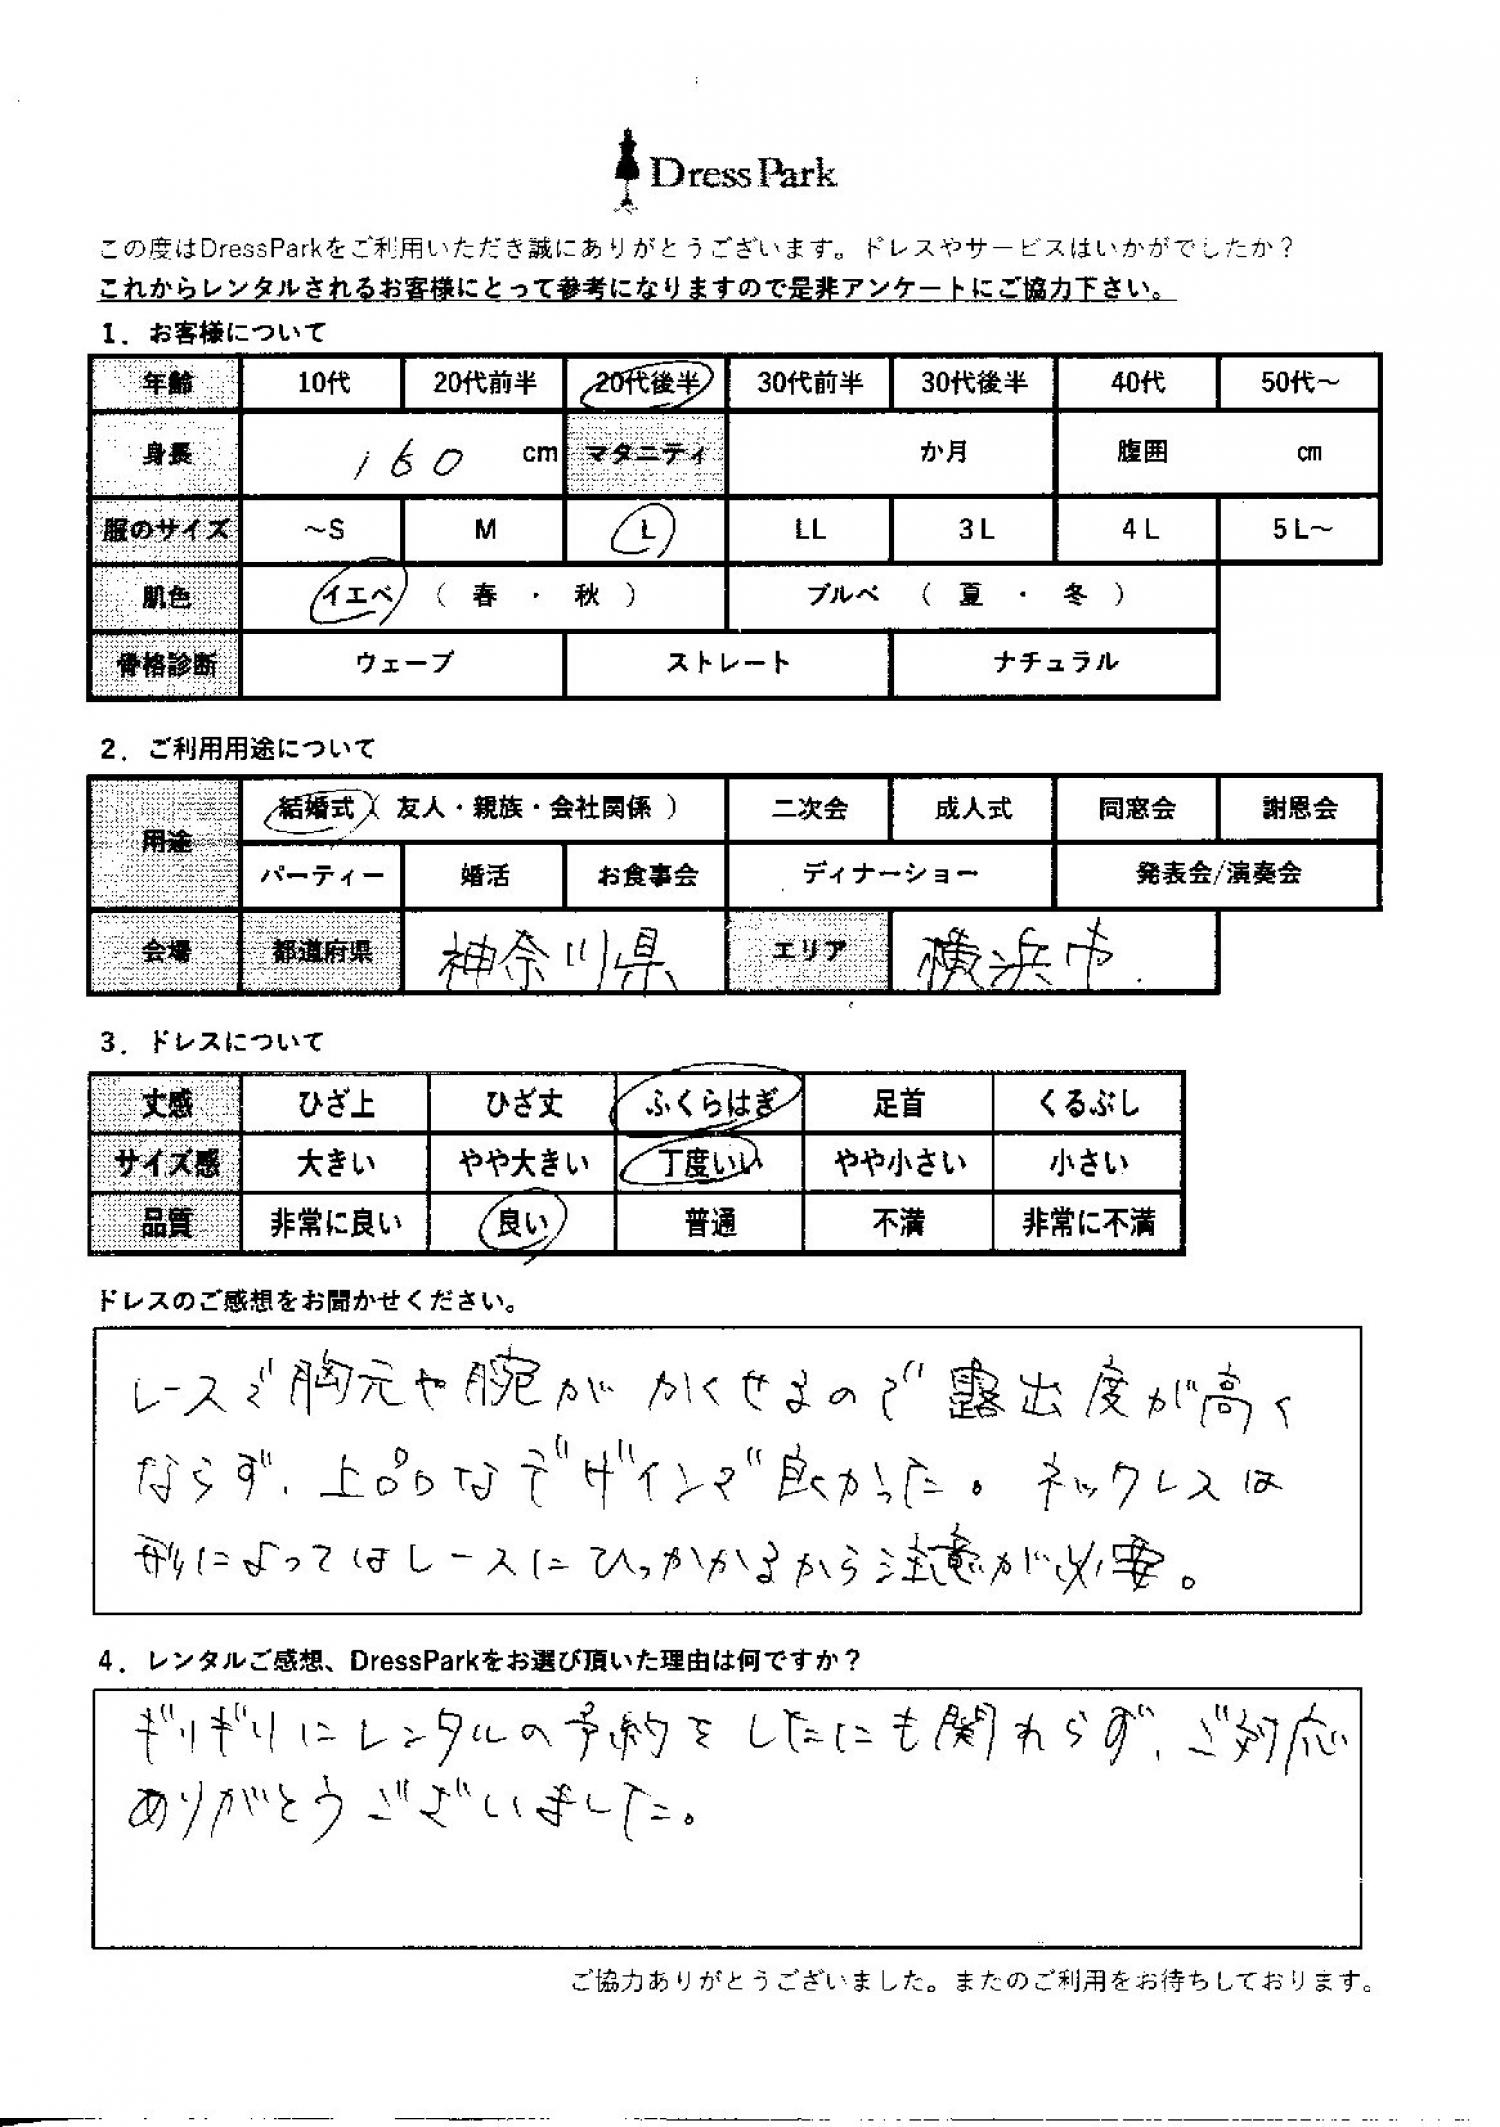 Dress Park
この度はDressParkをご利用いただき誠にありがとうございます。ドレスやサービスはいかがでしたか？
これからレンタルされるお客様にとって参考になりますので是非アンケートにご協力下さい。
1．お客様について
年齢 10代 20代前半 20代後半 30代前半 30代後半 40代 50代～
身長 160 cm マタニティ か月 腹囲 ㎝
服のサイズ ～S M L LL 3L 4L 5L～
肌色 イエベ （ 春 ・ 秋 ） ブルベ （ 夏 ・ 冬 ）
骨格診断 ウェーブ ストレート ナチュラル
2．ご利用用途について
用途 結婚式（ 友人・親族・会社関係 ） 二次会 成人式 同窓会 謝恩会
パーティー 婚活 お食事会 ディナーショー 発表会/演奏会
会場 都道府県 神奈川県 エリア 横浜市.
3．ドレスについて
丈感 ひざ上 ひざ丈 ふくらはぎ 足首 くるぶし
サイズ感 大きい やや大きい 丁度いい やや小さい 小さい
品質 非常に良い 良い 普通 不満 非常に不満
ドレスのご感想をお聞かせください。
レースで胸元や腕がかくせるので露出度が高く
ならず、上品なデザインで良かった。ネックレスは
形によってはレースにひっかかるから注意が必要。
4．レンタルご感想、DressParkをお選び頂いた理由は何ですか？
ギリギリにレンタルの予約をしたにも関わらず、ご対応
ありがとうございました。
ご協力ありがとうございました。またのご利用をお待ちしております。